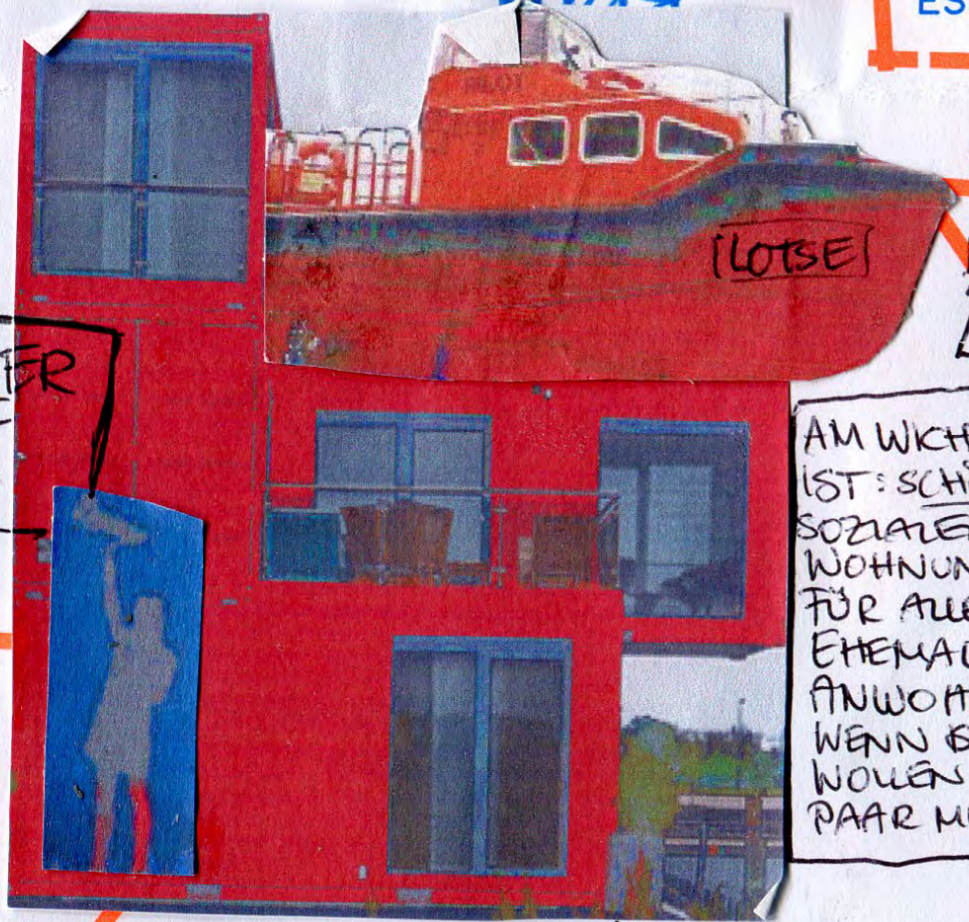 ES
PILOT
LOTSE
AM WICH
IST: SCHÖ
SOZIALE
WOHNUN
FÜR ALLE
EHEMAL
ANWOH
WENN
WOLLEN
PAAR M